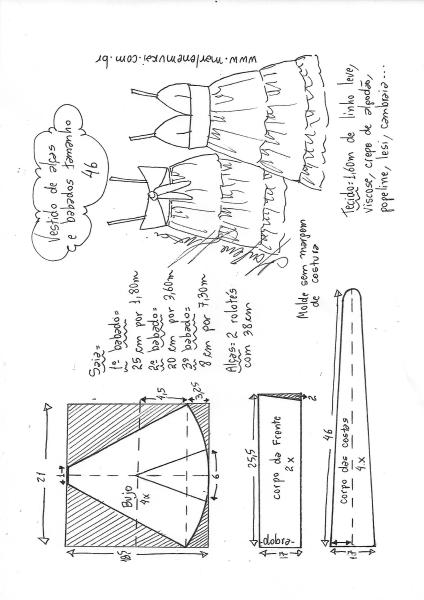 Vestido de alças
e babados tamanho
46
www.marlenemukai.com.br
Tecido: 1,60m de linho leve,
viscose, crepe de algodão,
popeline, lesi, cambraia...
Saia=
1º babado=
25 cm por 1,80m
2º babado=
20 cm por 3,60m
3º babado=
8 cm por 7,30m
Alças: 2 rolotês
com 38cm
Molde sem margem
de costura
21
1
4,5
3,25
Bujo
4x
6
18,5
25,5
2
corpo da frente
2x
dobra
17
46
corpo das costas
4x
17